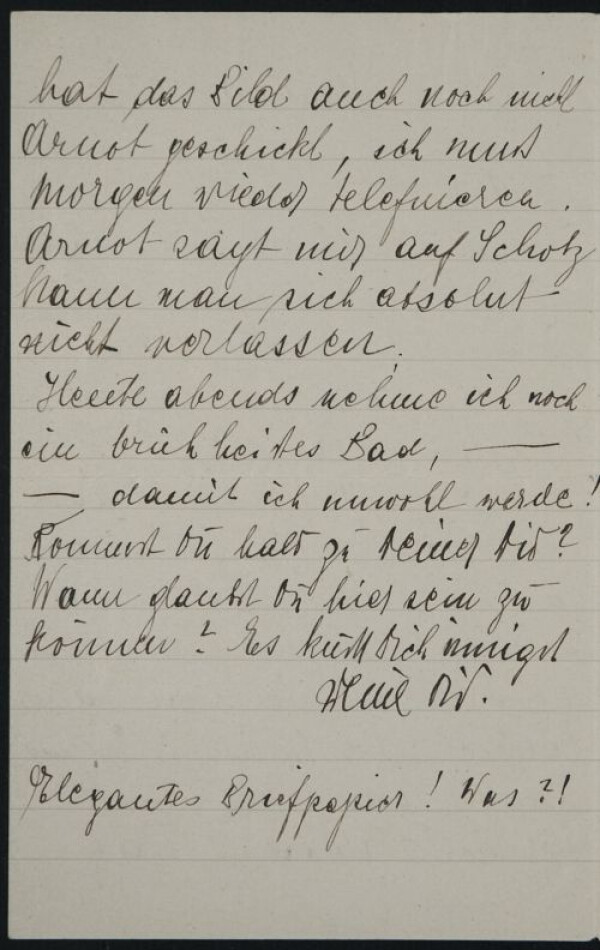 hat das Bild auch noch nicht
Arnot geschickt, ich muss
morgen wieder telefnieren.
Arnot sagt mir auf Scholz
kann man sich absolut
nicht verlassen.
Heute abends nehme ich noch
ein brühheißes Bad, —
— damit ich unwohl werde!
Kommst Du bald zu Deiner Did?
Wann glaubst Du hier sein zu
können? Es küsst Dich innigst
Deine Did.
Elegantes Briefpapier! Was?!